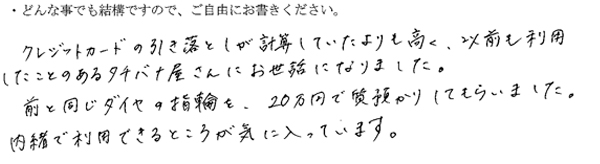 ・どんな事でも結構ですので、ご自由にお書きください。
クレジットカードの引き落としが計算していたよりも高く、以前も利用
したことのあるタチバナ屋さんにお世話になりました。
前と同じダイヤの指輪を、20万円で質預かりしてもらいました。
内緒で利用できるところが気に入っています。